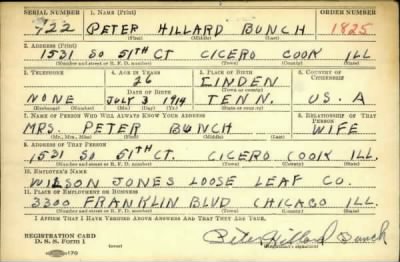 SERIAL NUMBER 1. NAME (Print) ORDER NUMBER
722 PETER HILLARD BUNCH 1825
(First) (Middle) (Last)
2. ADDRESS (Print)
1531 SO 51TH CT CICERO COOK ILL
(Number and street or R. F. D. number) (Town) (County) (State)
3. TELEPHONE 4. AGE IN YEARS 5. PLACE OF BIRTH 6. COUNTRY OF CITIZENSHIP
26 LINDEN
DATE OF BIRTH (Town or county)
NONE JULY 3 1914 TENN. U.S.A
(Exchange) (Number) (Mo.) (Day) (Yr.) (State or country)
7. NAME OF PERSON WHO WILL ALWAYS KNOW YOUR ADDRESS 8. RELATIONSHIP OF THAT PERSON
MRS. PETER BUNCH WIFE
(Mr., Mrs., Miss) (First) (Middle) (Last)
9. ADDRESS OF THAT PERSON
1531 SO 51TH CT. CICERO COOK ILL.
(Number and street or R. F. D. number) (Town) (County) (State)
10. EMPLOYER'S NAME
WILSON JONES LOOSE LEAF CO.
11. PLACE OF EMPLOYMENT OR BUSINESS
3300 FRANKLIN BLVD CHICAGO ILL.
(Number and street or R. F. D. number) (Town) (County) (State)
I AFFIRM THAT I HAVE VERIFIED ABOVE ANSWERS AND THAT THEY ARE TRUE.
REGISTRATION CARD
D. S. S. Form 1
Peter Hillard Bunch
(Registrant's signature)